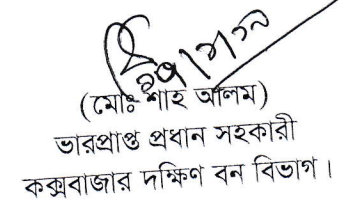 (মোঃ শাহ আলম)
ভারপ্রাপ্ত প্রধান সহকারী
কক্সবাজার দক্ষিণ বন বিভাগ।